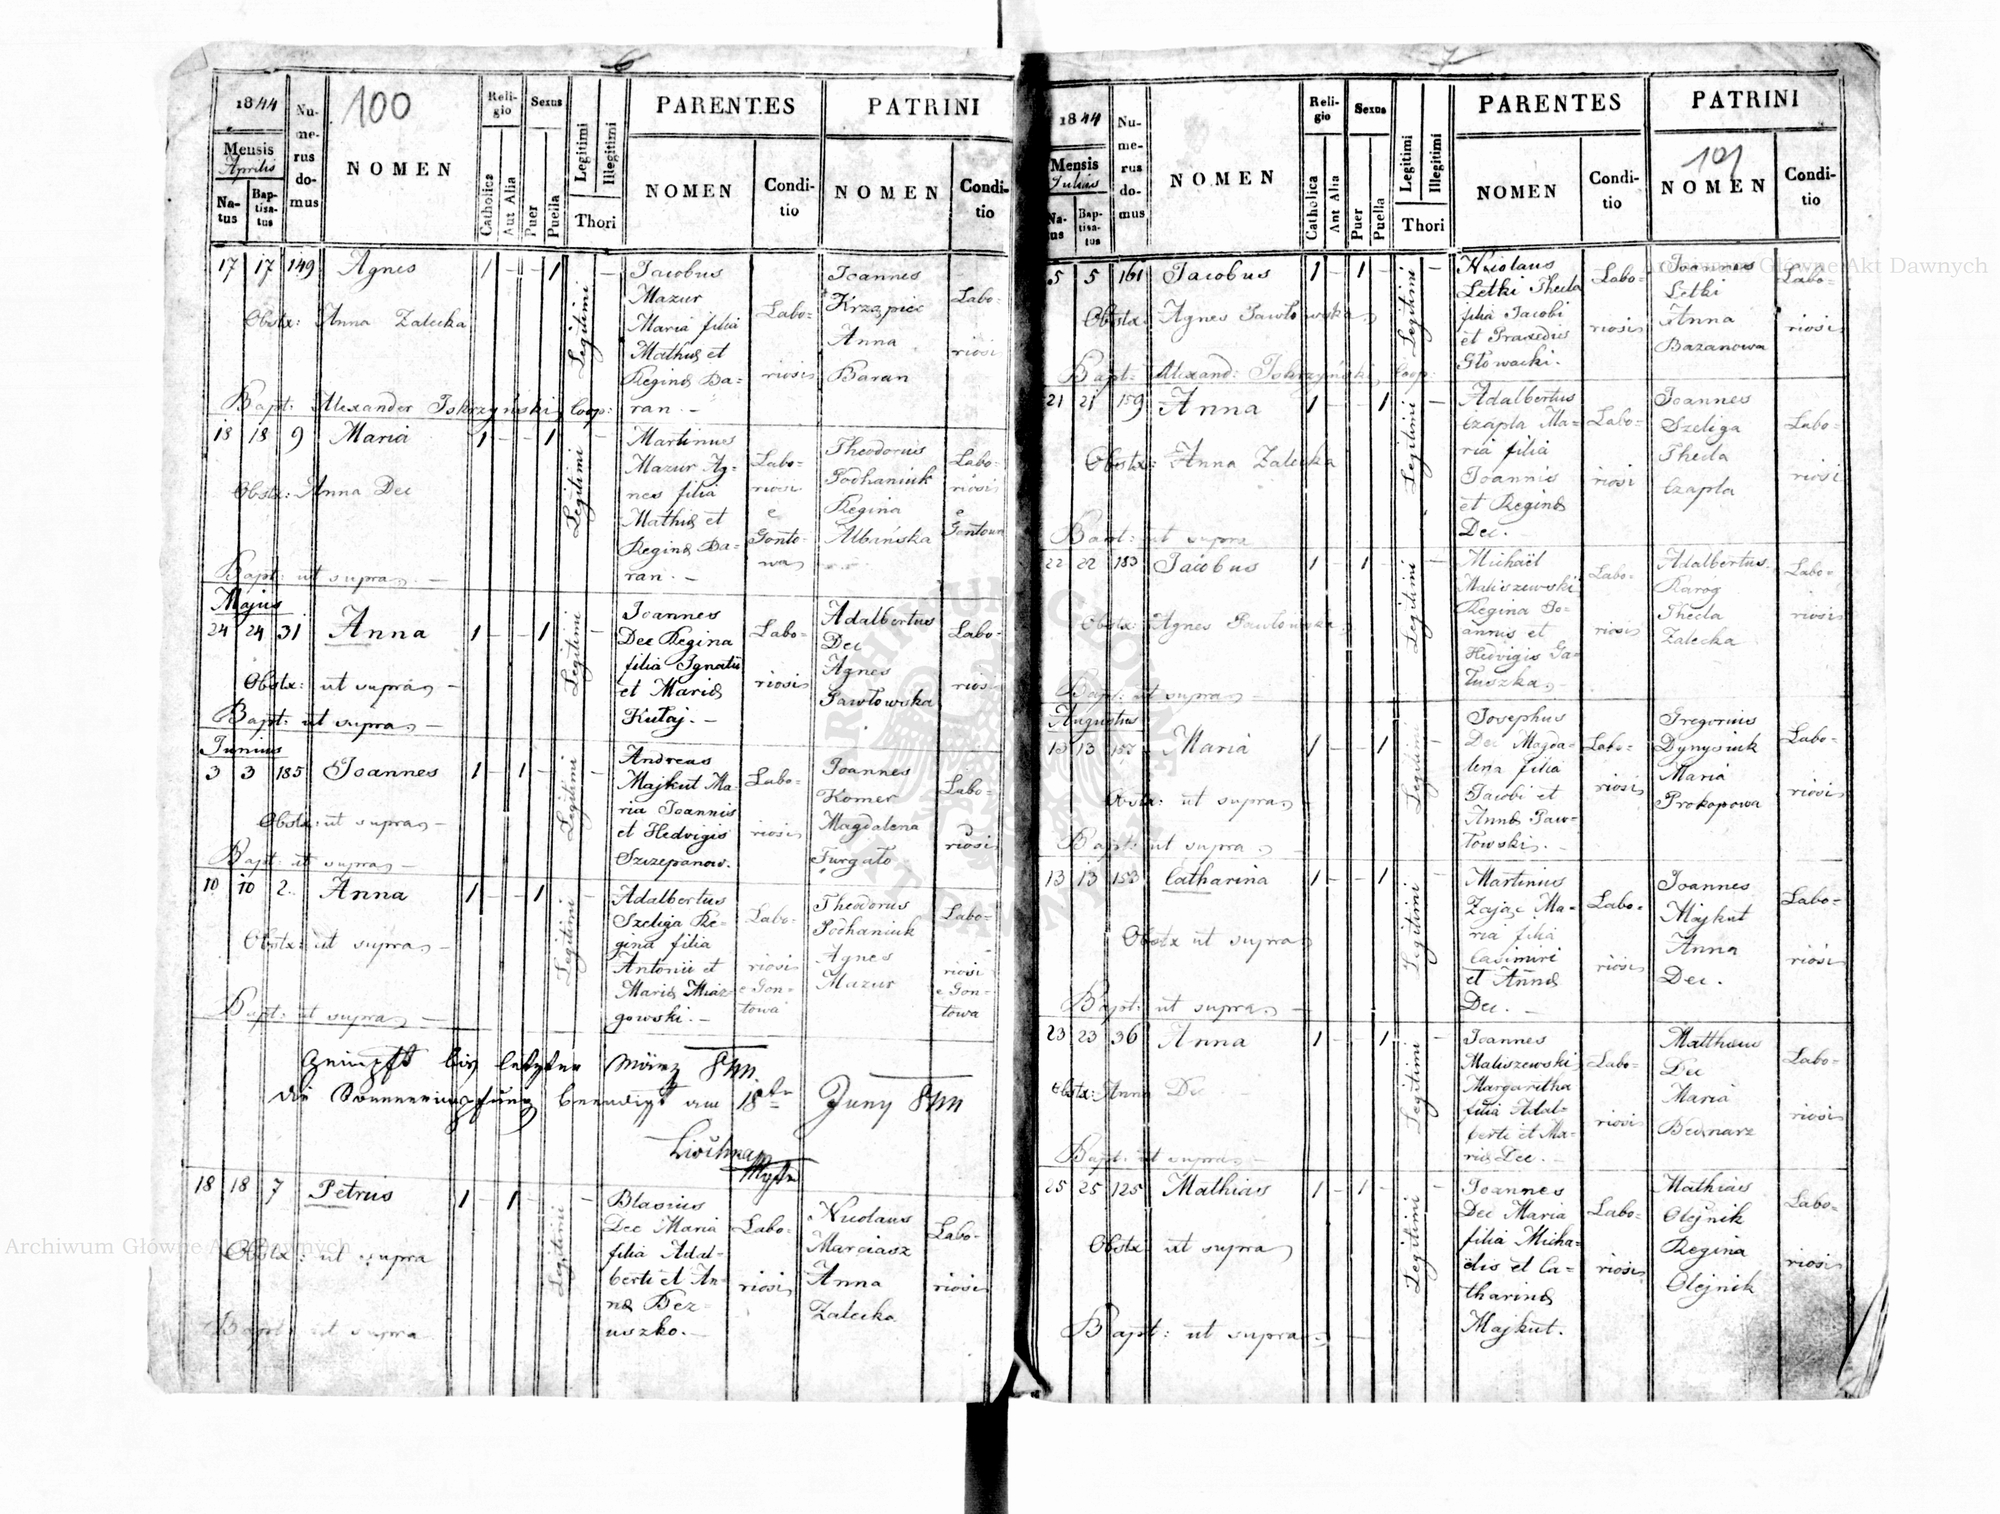 6
1844
Mensis
Aprilis
Na-
tus
Bap-
tisa-
tus
Nu-
me-
rus
do-
mus
100
NOMEN
Reli-
gio
Catholica
Aut Alia
Sexus
Puer
Puella
Legitimi
Illegitimi
Thori
PARENTES
NOMEN
Condi-
tio
PATRINI
NOMEN
Condi-
tio
17 17 149 Agnes 1 - - 1 Legitimi -
Obstx: Anna Zalecka
Bapt: Alexander Iskrzyński Coop:
Jacobus
Mazur
Maria filia
Mathiæ et
Reginæ Ba=
ran. -
Labo=
riosi
Joannes
Krząpiec
Anna
Baran
Labo=
riosi
18 18 9 Maria 1 - - 1 Legitimi -
Obstx: Anna Dec
Bapt: ut supra. -
Martinus
Mazur Ag=
nes filia
Mathiæ et
Reginæ Ba=
ran. -
Labo=
riosi
e
Gonto=
wa
Theodorus
Podhaniuk
Regina
Albańska
Labo=
riosi
e
Gontowa
Majus
24 24 31 Anna 1 - - 1 Legitimi -
Obstx: ut supra -
Bapt: ut supra -
Joannes
Dec Regina
filia Ignatii
et Mariæ
Kutaj. -
Labo=
riosi
Adalbertus
Dec
Agnes
Pawłowska
Labo=
riosi
Junius
3 3 185 Joannes 1 - 1 - Legitimi -
Obstx: ut supra -
Bapt: ut supra -
Andreas
Majkut Ma=
ria Joannis
et Hedvigis
Szczepanow.
Labo=
riosi
Joannes
Komer
Magdalena
Furgało
Labo=
riosi
10 10 2. Anna 1 - - 1 Legitimi -
Obstx: ut supra -
Bapt: ut supra -
Adalbertus
Szeliga Re=
gina filia
Antonii et
Mariæ Miaz=
gowski. -
Labo=
riosi
e Gon=
towa
Theodorus
Podhaniuk
Agnes
Mazur
Labo=
riosi
e Gon=
towa
Geimpft bis letzten März 844.
die Sommerimpfung beendigt am 18ten Juny 844
18 18 7 Petrus 1 - 1 - Legitimi -
Obstx: ut supra
Bapt: ut supra
Blasius
Dec Maria
filia Adal=
berti et An=
næ Bez=
uszko. -
Labo=
riosi
Nicolaus
Marciasz
Anna
Zalecka
Labo=
riosi
7
1844
Mensis
Julius
Na-
tus
Bap-
tisa-
tus
Nu-
me-
rus
do-
mus
NOMEN
Reli-
gio
Catholica
Aut Alia
Sexus
Puer
Puella
Legitimi
Illegitimi
Thori
PARENTES
NOMEN
Condi-
tio
PATRINI
101
NOMEN
Condi-
tio
5 5 161 Jacobus 1 - 1 - Legitimi -
Obstx: Agnes Pawłowska
Bapt: Alexand: Iskrzyński Coop:
Nicolaus
Letki Thecla
filia Jacobi
et Praxedis
Głowacki.
Labo=
riosi
Joannes
Letki
Anna
Bazanowa
Labo=
riosi
21 21 159 Anna 1 - - 1 Legitimi -
Obstx: Anna Zalecka
Bapt: ut supra
Adalbertus
Czapla Ma=
ria filia
Joannis
et Reginæ
Dec.
Labo=
riosi
Joannes
Szeliga
Thecla
Czapla
Labo=
riosi
22 22 183 Jacobus 1 - 1 - Legitimi -
Obstx: Agnes Pawłowska
Bapt: ut supra -
Michaël
Maliszewski
Regina Jo=
annis et
Hedvigis Ga=
łuszka. -
Labo=
riosi
Adalbertus
Karog
Thecla
Zalecka
Labo=
riosi
Augustus
13 13 157 Maria 1 - - 1 Legitimi -
Obstx: ut supra -
Bapt: ut supra -
Josephus
Dec Magda=
lena filia
Jacobi et
Annæ Paw=
łowski. -
Labo=
riosi
Gregorius
Dynysiuk
Maria
Prokopowa
Labo=
riosi
13 13 153 Catharina 1 - - 1 Legitimi -
Obstx ut supra
Bapt: ut supra -
Martinus
Zając Ma=
ria filia
Casimiri
et Annæ
Dec. -
Labo=
riosi
Joannes
Majkut
Anna
Dec.
Labo=
riosi
23 23 36 Anna 1 - - 1 Legitimi -
Obstx: Anna Dec -
Bapt: ut supra -
Joannes
Maliszewski
Margaretha
filia Adal=
berti et Ma=
riæ Dec. -
Labo=
riosi
Mattheus
Dec
Maria
Bednarz
Labo=
riosi
25 25 125 Mathias 1 - 1 - Legitimi -
Obstx: ut supra
Bapt: ut supra -
Joannes
Dec Maria
filia Micha=
ëlis et Ca=
tharinæ
Majkut.
Labo=
riosi
Mathias
Olejnik
Regina
Olejnik
Labo=
riosi
Archiwum Główne Akt Dawnych
Archiwum Główne Akt Dawnych
ARCHIWUM GŁÓWNE AKT DAWNYCH